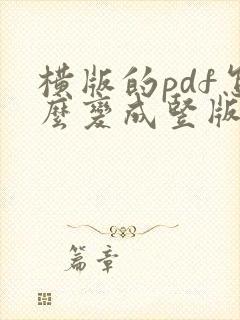 横版的pdf怎
麼變成竪版
篇章